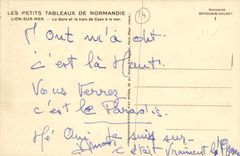 LES PETITS TABLEAUX DE NORMANDIE
LION-SUR-MER. - La Gare et le train de Caen à la mer.
Exclusivité
BOTQUARIN-DOUDET
1
14
M'ont m'a dit
c'est là Haut!
Vous Verrez
c'est le Paradis
Hé Oui je suis sur
c'était vraiment le